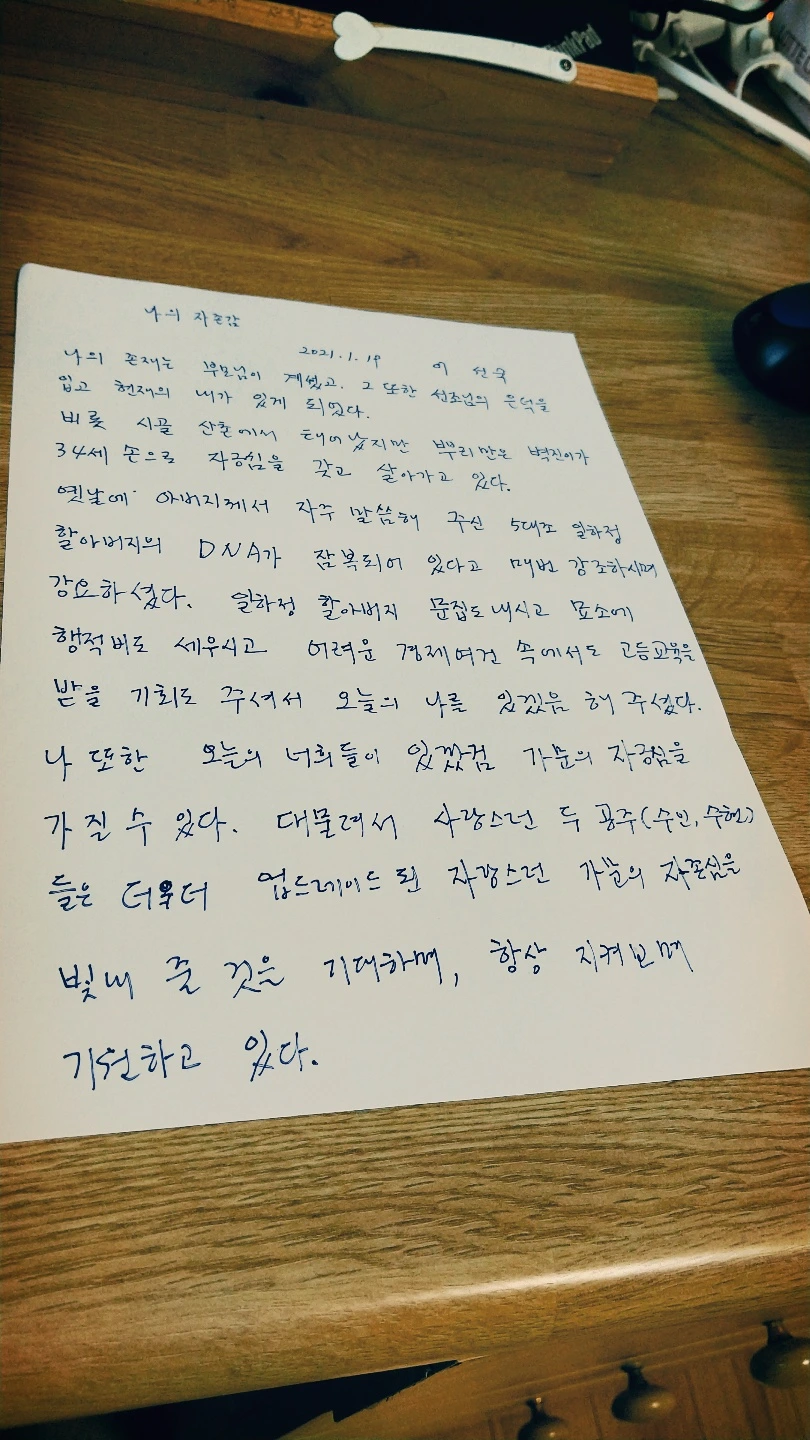 ThinkPad
나의 자존감
2021.1.19 이 선국
나의 존재는 부모님이 계셨고, 그 또한 선조님의 은덕을
입고 현재의 내가 있게 되었다.
비록 시골 산촌에서 태어났지만 뿌리만은 벽진이가
34세 손으로 자긍심을 갖고 살아가고 있다.
옛날에 아버지께서 자주 말씀해 주신 5대조 열하정
할아버지의 DNA가 잠복되어 있다고 매번 강조하시며
강요하셨다. 열하정 할아버지 문집도 내시고 묘소에
행적비도 세우시고 어려운 경제여건 속에서도 고등교육을
받을 기회도 주셔서 오늘의 나를 있겠음 해 주셨다.
나 또한 오늘의 너희들이 있깠검 가문의 자긍심을
가질 수 있다. 대물려서 사랑스런 두 공주(수민, 수현)
들은 더욱더 업드레이드 된 자랑스런 가문의 자존심을
빛내 줄 것을 기대하며, 항상 지켜보며
기원하고 있다.